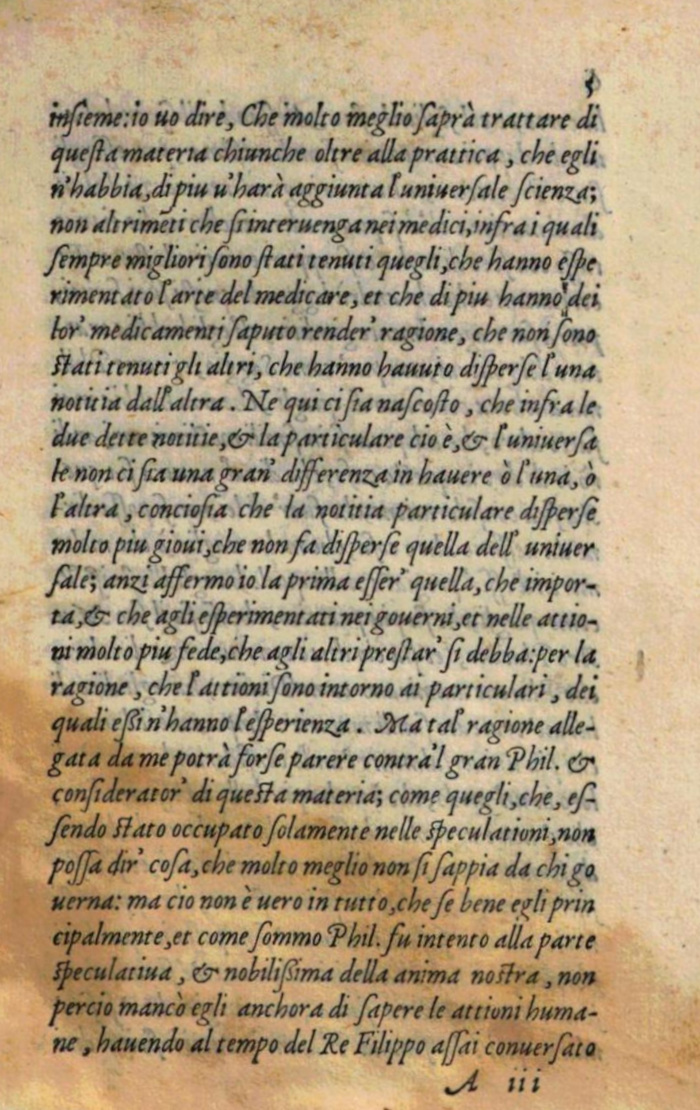 5
insieme: io uo dire, Che molto meglio saprà trattare di
questa materia chiunche oltre alla prattica, che egli
n'habbia, di piu u'harà aggiunta l'uniuersale scienza;
non altrimẽti che si interuenga nei medici, infra i quali
sempre migliori sono stati tenuti quegli, che hanno espe
rimentato l'arte del medicare, et che di piu hanno dei
lor' medicamenti saputo render' ragione, che non sono
stati tenuti gli altri, che hanno hauuto disperse l'una
notitia dall'altra. Ne qui ci sia nascosto, che infra le
due dette notitie, & la particulare cio è, & l'uniuersa
le non ci sia una gran' differenza in hauere ò l'una, ò
l'altra, conciosia che la notitia particulare disperse
molto piu gioui, che non fa disperse quella dell' uniuer
sale; anzi affermo io la prima esser' quella, che impor-
ta, & che agli esperimentati nei gouerni, et nelle attio-
ni molto piu fede, che agli altri prestar' si debba: per la
ragione, che l'attioni sono intorno ai particulari, dei
quali eßi n'hanno l'esperienza. Ma tal' ragione alle-
gata da me potrà forse parere contra'l gran Phil. &
considerator' di questa materia; come quegli, che, es-
sendo stato occupato solamente nelle speculationi, non
possa dir' cosa, che molto meglio non si sappia da chi go
uerna: ma cio non è uero in tutto, che se bene egli prin
cipalmente, et come sommo Phil. fu intento alla parte
speculatiua, & nobilißima della anima nostra, non
percio mancò egli anchora di sapere le attioni huma-
ne, hauendo al tempo del Re Filippo assai conuersato
A iii